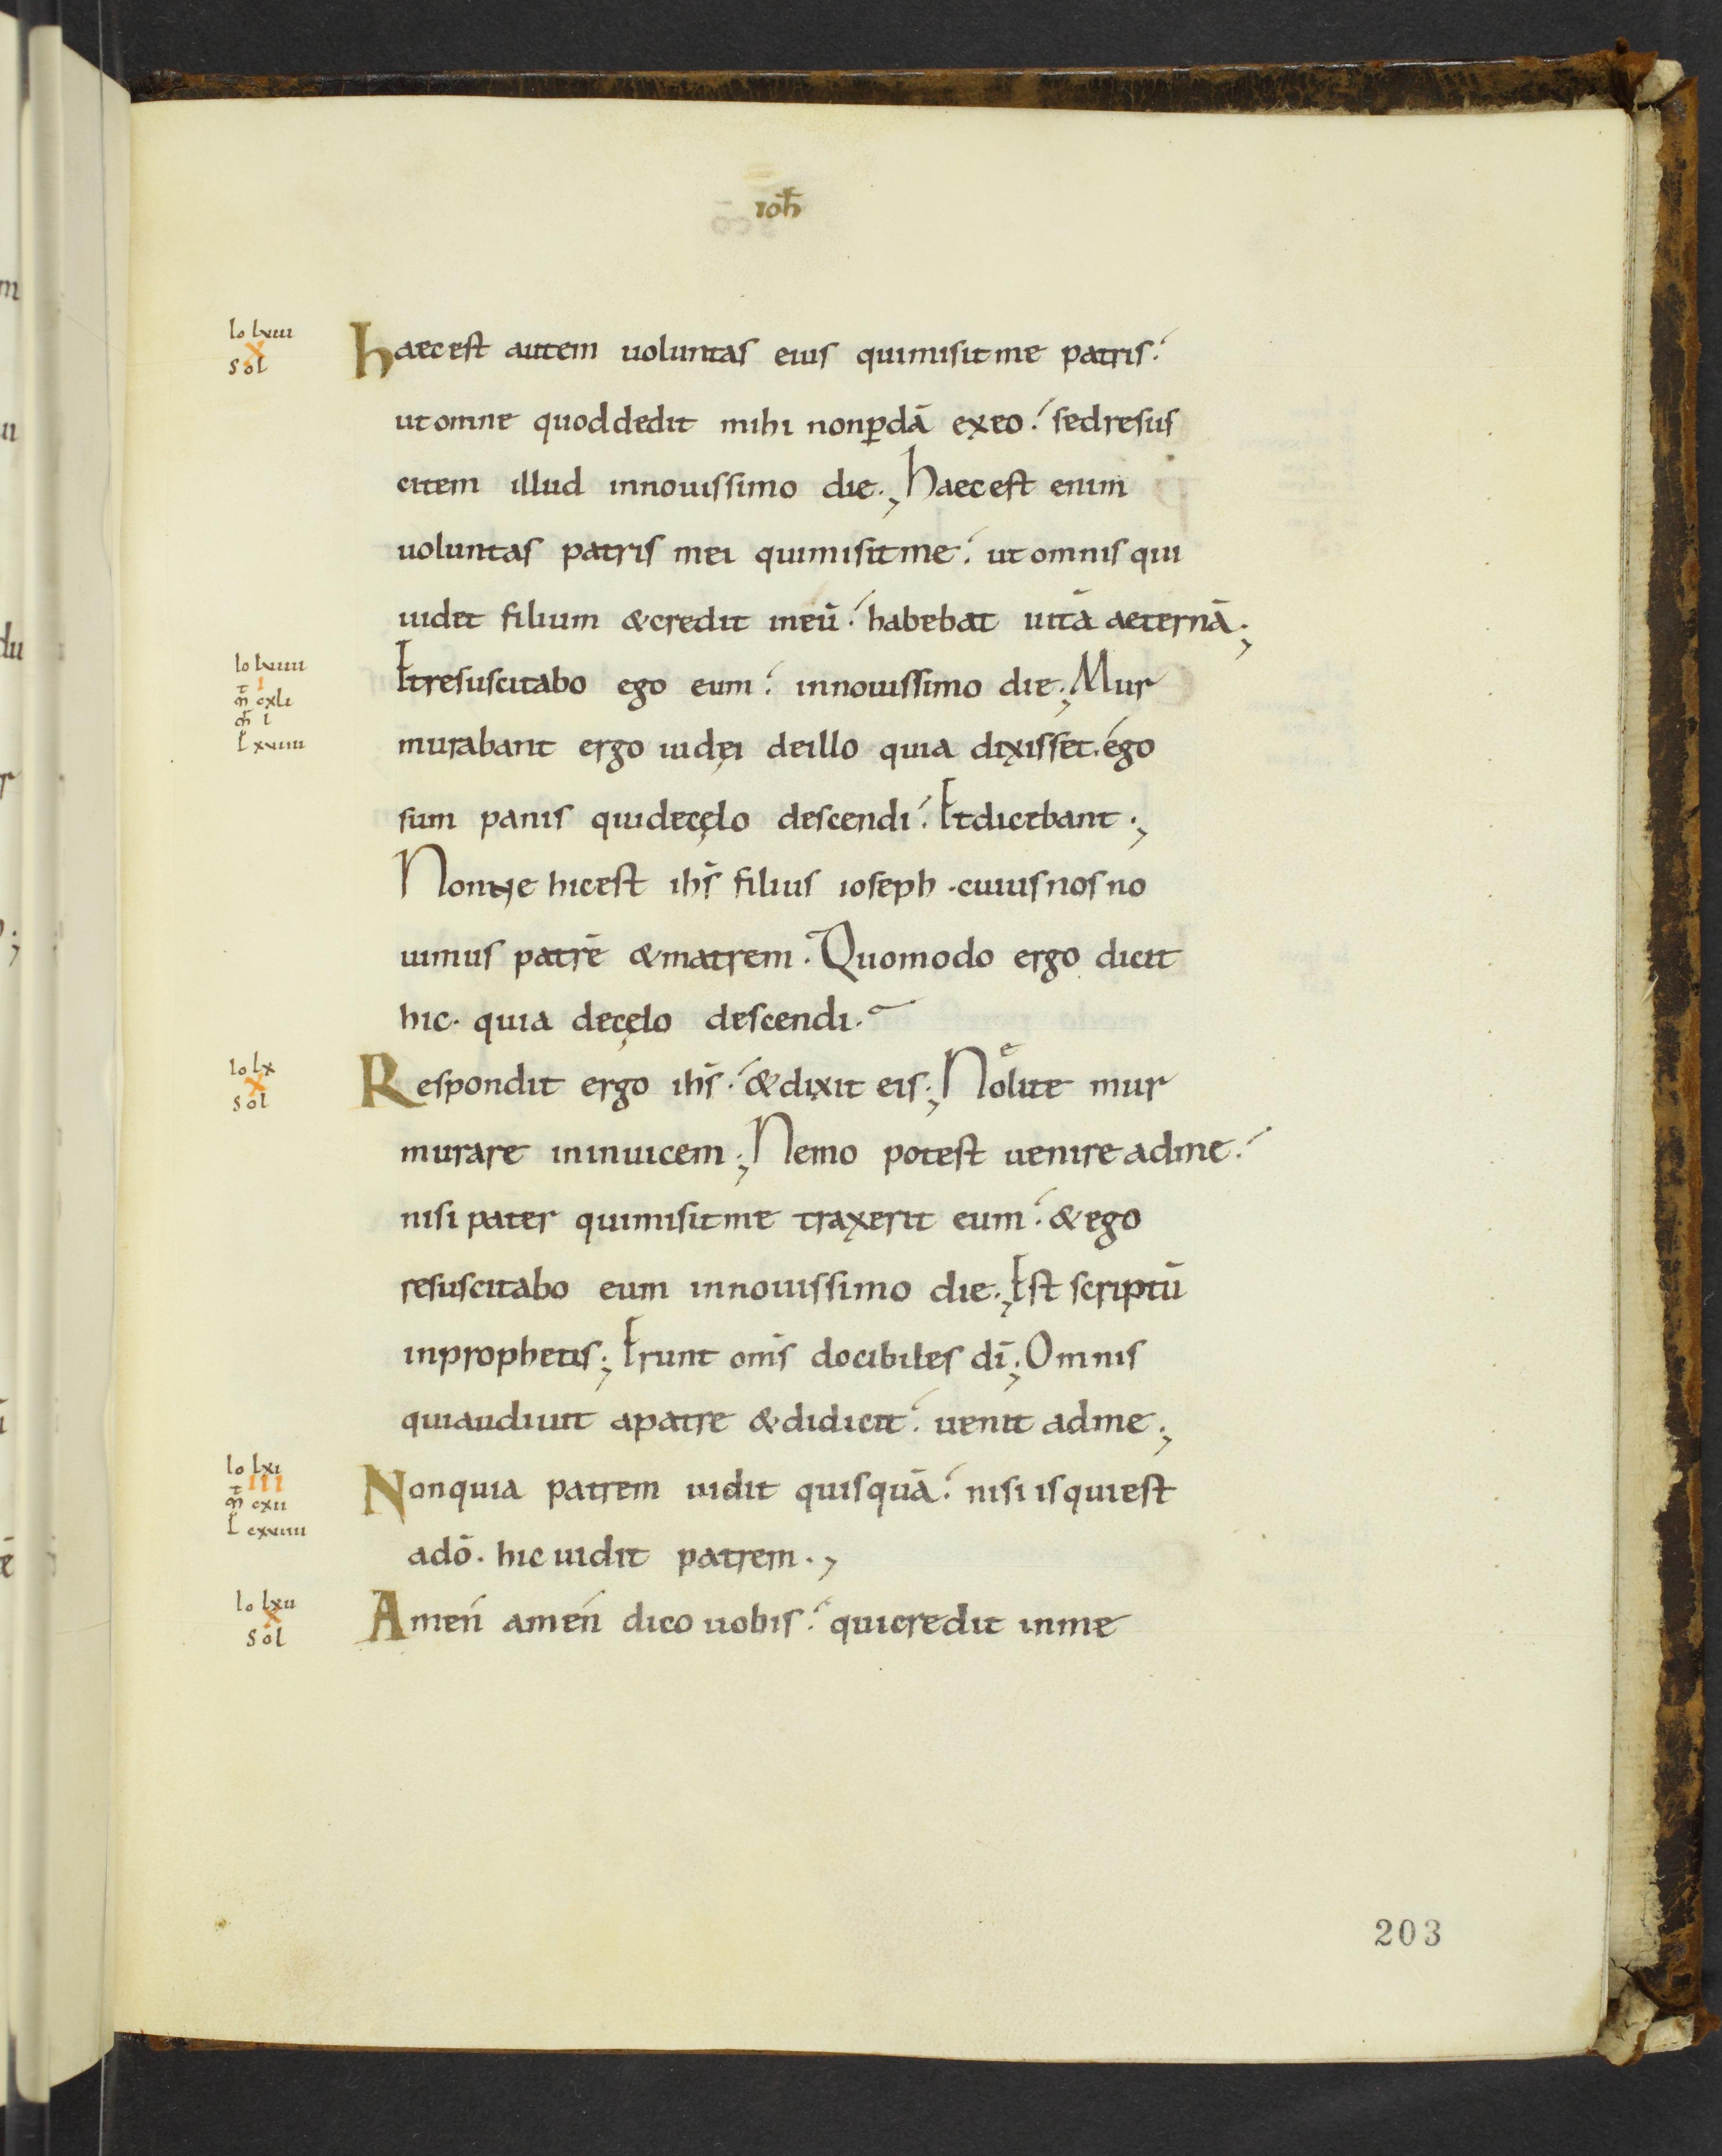 ioh̄
Io lviii
X
sol
haec est autem uoluntas eius quimisit me patris.
ut omne quod dedit mihi nonꝑdā exeo. sedresus
citem illud innouissimo die; Haec est enim
uoluntas patris mei quimisit me. ut omnis qui
uidet filium & credit ineū. habebat uitā aeternā;
Io lviiii
I
m̄ cxli
I
L xviiii
Et resuscitabo ego eum. innouissimo die; Mur
murabant ergo iudęi deillo quia dixisset. ego
sum panis quidecęlo descendi. Et dicebant;
Nonne hic est ihs̄ filius ioseph. cuius nos no
uimus patrē & matrem. Quomodo ergo dicit
hic. quia decęlo descendi.
Io lx
X
sol
Respondit ergo ihs̄. & dixit eis; Nolite mur
murare ininuicem; Nemo potest uenire adme.
nisi pater quimisit me traxerit eum. & ego
resuscitabo eum innouissimo die; Est scriptū
inprophetis; Erunt om̄s docibiles dī; Omnis
quiaudiuit apatre & didicit. uenit adme;
Io lxi
III
m̄ cxii
L cxviiii
Nonquia patrem uidit quisquā. nisi is quiest
adō. hic uidit patrem.,
Io lxii
X
sol
Amen amen dico uobis. quicredit inme
203